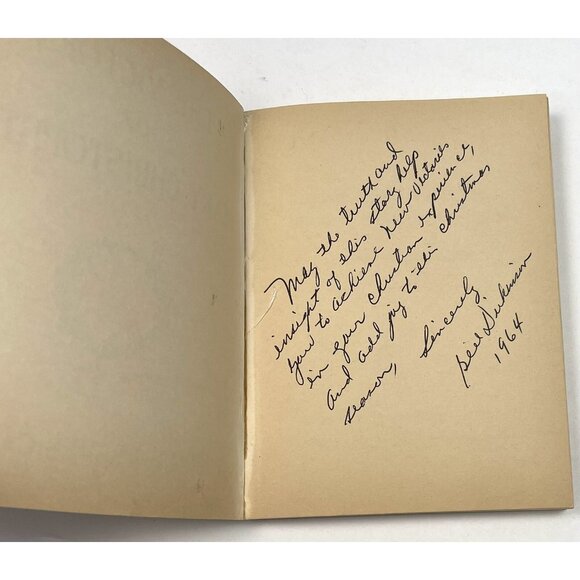 May the truth and
insight of this story help
you to achieve New Victories
in your christian experience,
and add joy to this christmas
season,
Sincerely
Bill Dickinson
1964